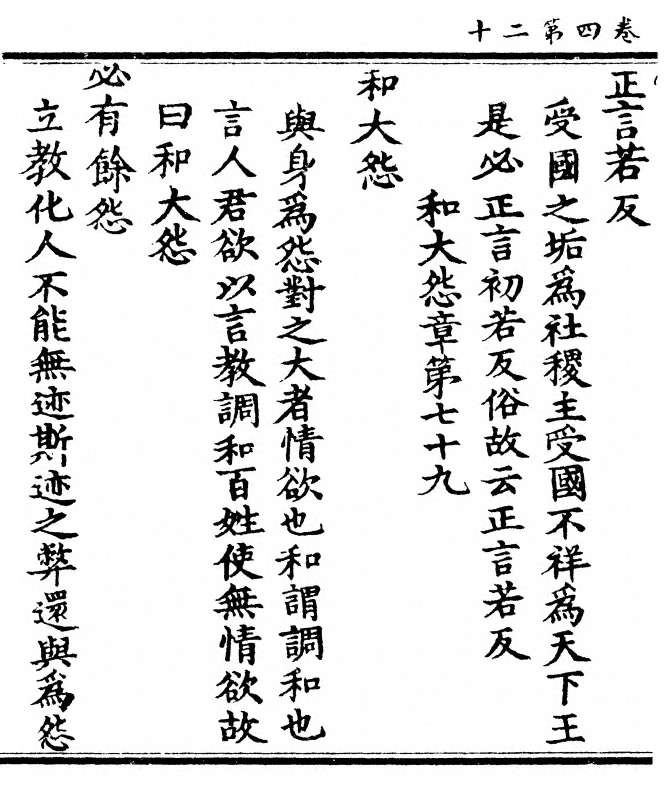 卷四第二十
正言若反
受國之垢爲社稷主受國不祥爲天下王
是必正言初若反俗故云正言若反
和大怨章第七十九
和大怨
與身爲怨對之大者情欲也和謂調和也
言人君欲以言教調和百姓使無情欲故
曰和大怨
必有餘怨
立教化人不能無迹斯迹之弊還與爲怨